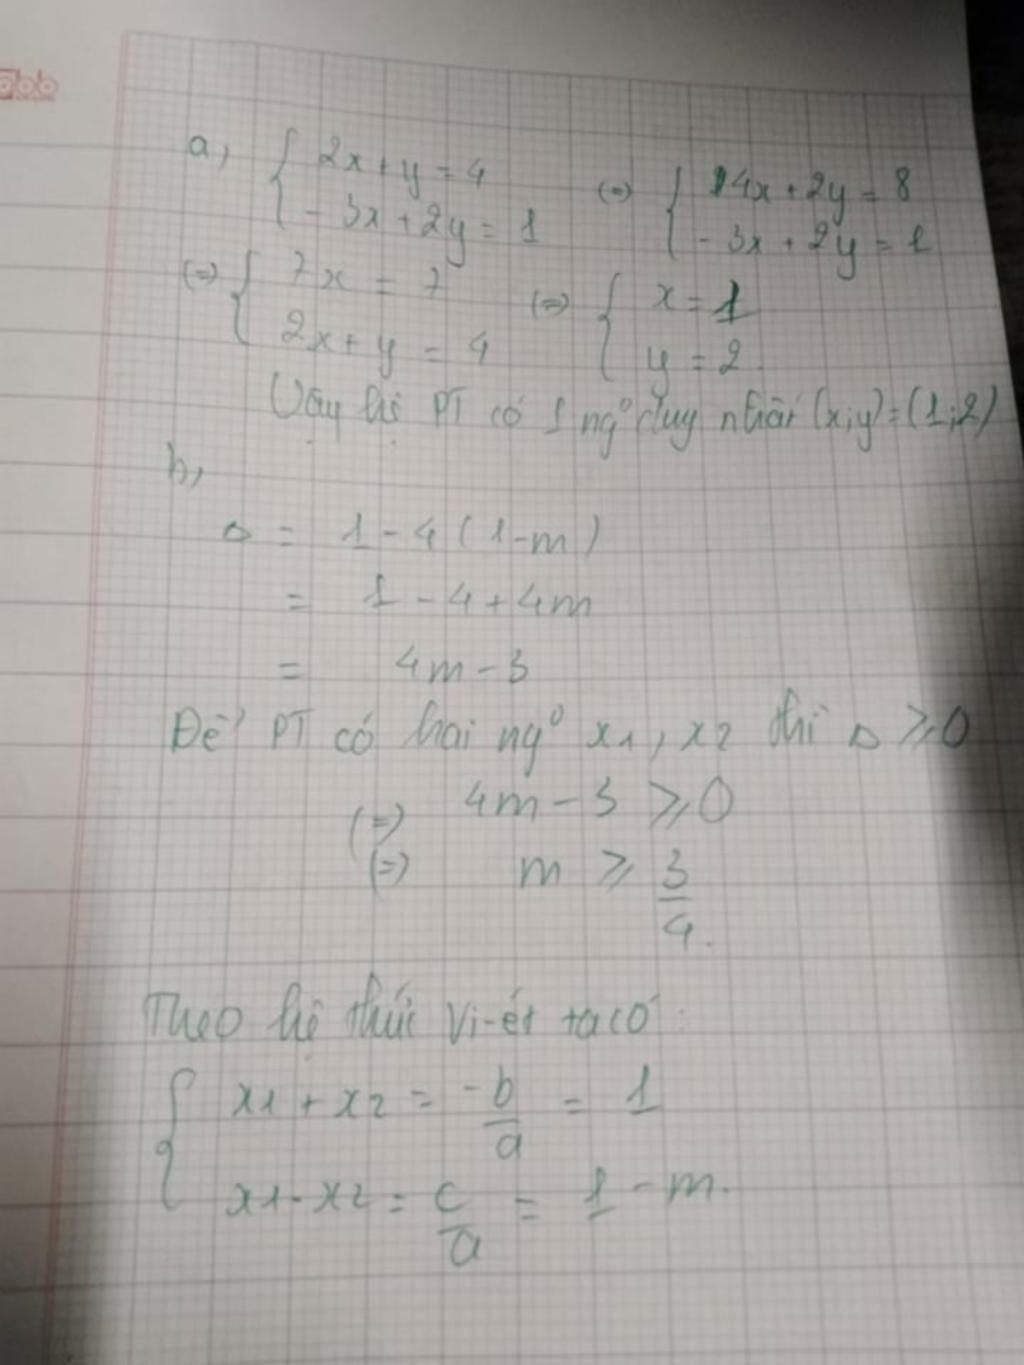 a, { 2x + y = 4 (=) { 4x + 2y = 8
- 3x + 2y = 1 - 3x + 2y = 1
(=) { 7x = 7 (=) { x = 1
2x + y = 4 y = 2
Vậy hệ PT có 1 ngº duy nhất (x;y) = (1;2)
b,
Δ = 1 - 4 ( 1 - m )
= 1 - 4 + 4m
= 4m - 3
Để PT có hai ngº x1, x2 thì Δ ≥ 0
(=) 4m - 3 ≥ 0
(=) m ≥ 3/4.
Theo hệ thức Vi-ét ta có :
{ x1 + x2 = -b/a = 1
x1 . x2 = c/a = 1 - m.